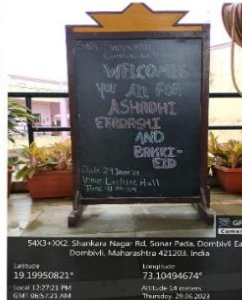 WELCOMES
YOU ALL FOR
ASHADHI
EKADASHI
AND
BAKRI-
EID
Date: 29
Venue: Lecture Hall
54X3+XX2, Shankara Nagar Rd, Sonar Pada, Dombivli Ea
Dombivli, Maharashtra 421203, India
Latitude
19.19950821°
Longitude
73.10494674°
Local 12:27:21 PM
GMT 06:57:21 AM
Altitude 14 meters
Thursday, 29.06.2023